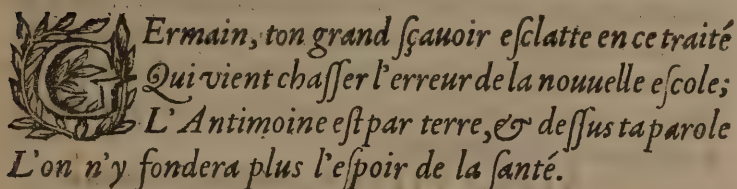 GErmain, ton grand ſçauoir eſclatte en ce traité
Qui vient chaſſer l'erreur de la nouuelle eſcole;
L'Antimoine eſt par terre, & deſſus ta parole
L'on n'y fondera plus l'eſpoir de la ſanté.